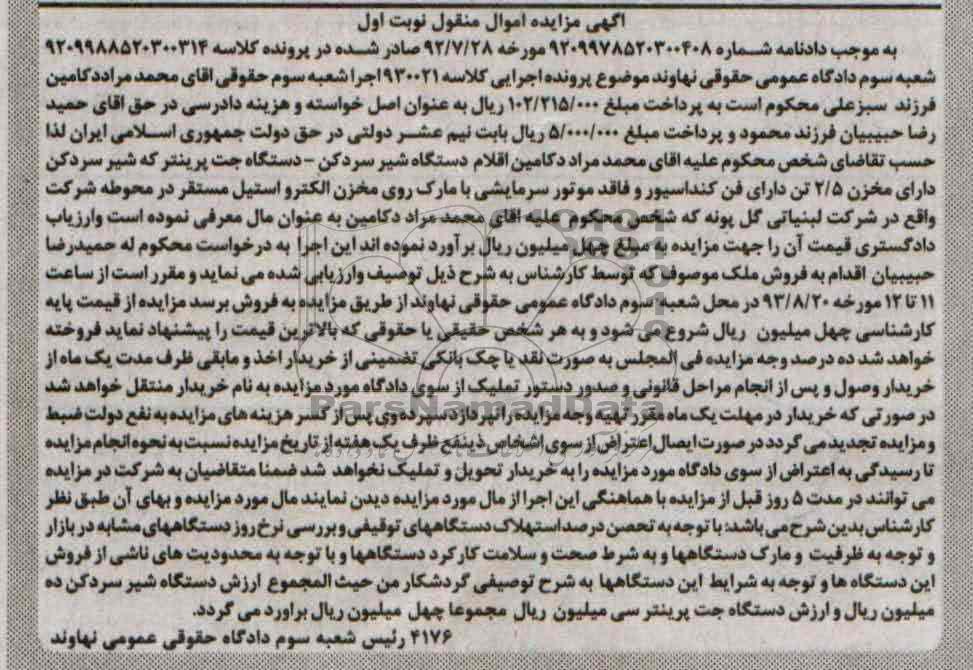 آگهی مزایده اموال منقول نوبت اول
به موجب دادنامه شماره ۹۲۰۹۹۷۸۵۲۰۳۰۰۴۰۸ مورخه ۹۲/۷/۲۸ صادر شده در پرونده کلاسه ۹۲۰۹۹۸۸۵۲۰۳۰۰۳۱۴
شعبه سوم دادگاه عمومی حقوقی نهاوند موضوع پرونده اجرایی کلاسه ۹۳۰۰۲۱ اجرا شعبه سوم حقوقی اقای محمد مراددکامین
فرزند سبزعلی محکوم است به پرداخت مبلغ ۱۰۲/۲۱۵/۰۰۰ ریال به عنوان اصل خواسته و هزینه دادرسی در حق اقای حمید
رضا حبیبیان فرزند محمود و پرداخت مبلغ ۵/۰۰۰/۰۰۰ ریال بابت نیم عشر دولتی در حق دولت جمهوری اسلامی ایران لذا
حسب تقاضای شخص محکوم علیه اقای محمد مراد دکامین اقلام دستگاه شیر سردکن - دستگاه جت پرینتر که شیر سردکن
دارای مخزن ۲/۵ تن دارای فن کنداسیور و فاقد موتور سرمایشی با مارک روی مخزن الکترو استیل مستقر در محوطه شرکت
واقع در شرکت لبنیاتی گل پونه که شخص محکوم علیه اقای محمد مراد دکامین به عنوان مال معرفی نموده است وارزیاب
دادگستری قیمت آن را جهت مزایده به مبلغ چهل میلیون ریال برآورد نموده اند این اجرا به درخواست محکوم له حمیدرضا
حبیبیان اقدام به فروش ملک موصوف که توسط کارشناس به شرح ذیل توصیف وارزیابی شده می نماید و مقرر است از ساعت
۱۱ تا ۱۲ مورخه ۹۳/۸/۲۰ در محل شعبه سوم دادگاه عمومی حقوقی نهاوند از طریق مزایده به فروش برسد مزایده از قیمت پایه
کارشناسی چهل میلیون ریال شروع می شود و به هر شخص حقیقی یا حقوقی که بالاترین قیمت را پیشنهاد نماید فروخته
خواهد شد ده درصد وجه مزایده فی المجلس به صورت نقد یا چک بانکی تضمینی از خریدار اخذ و مابقی ظرف مدت یک ماه از
خریدار وصول و پس از انجام مراحل قانونی و صدور دستور تملیک از سوی دادگاه مورد مزایده به نام خریدار منتقل خواهد شد
در صورتی که خریدار در مهلت یک ماه مقرر تهیه وجه مزایده را نپردازد سپرده وی پس از کسر هزینه های مزایده به نفع دولت ضبط
و مزایده تجدید می گردد در صورت ایصال اعتراض از سوی اشخاص ذینفع ظرف یک هفته از تاریخ مزایده نسبت به نحوه انجام مزایده
تا رسیدگی به اعتراض از سوی دادگاه مورد مزایده را به خریدار تحویل و تملیک نخواهد شد ضمنا متقاضیان به شرکت در مزایده
می توانند در مدت ۵ روز قبل از مزایده با هماهنگی این اجرا از مال مورد مزایده دیدن نمایند مال مورد مزایده و بهای آن طبق نظر
کارشناس بدین شرح می باشد: با توجه به تحصن درصد استهلاک دستگاههای توقیفی و بررسی نرخ روز دستگاههای مشابه در بازار
و توجه به ظرفیت و مارک دستگاهها و به شرط صحت و سلامت کارکرد دستگاهها و با توجه به محدودیت های ناشی از فروش
این دستگاه ها و توجه به شرایط این دستگاهها به شرح توصیفی گردشکار من حیث المجموع ارزش دستگاه شیر سردکن ده
میلیون ریال و ارزش دستگاه جت پرینتر سی میلیون ریال مجموعا چهل میلیون ریال براورد می گردد.
۴۱۷۶ رئیس شعبه سوم دادگاه حقوقی عمومی نهاوند
ParsNamadData